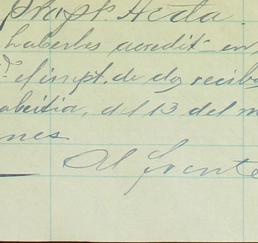 haberles acredit en
el impt. de dos recibo
abeitia, del 13 del m
nes
Al frente